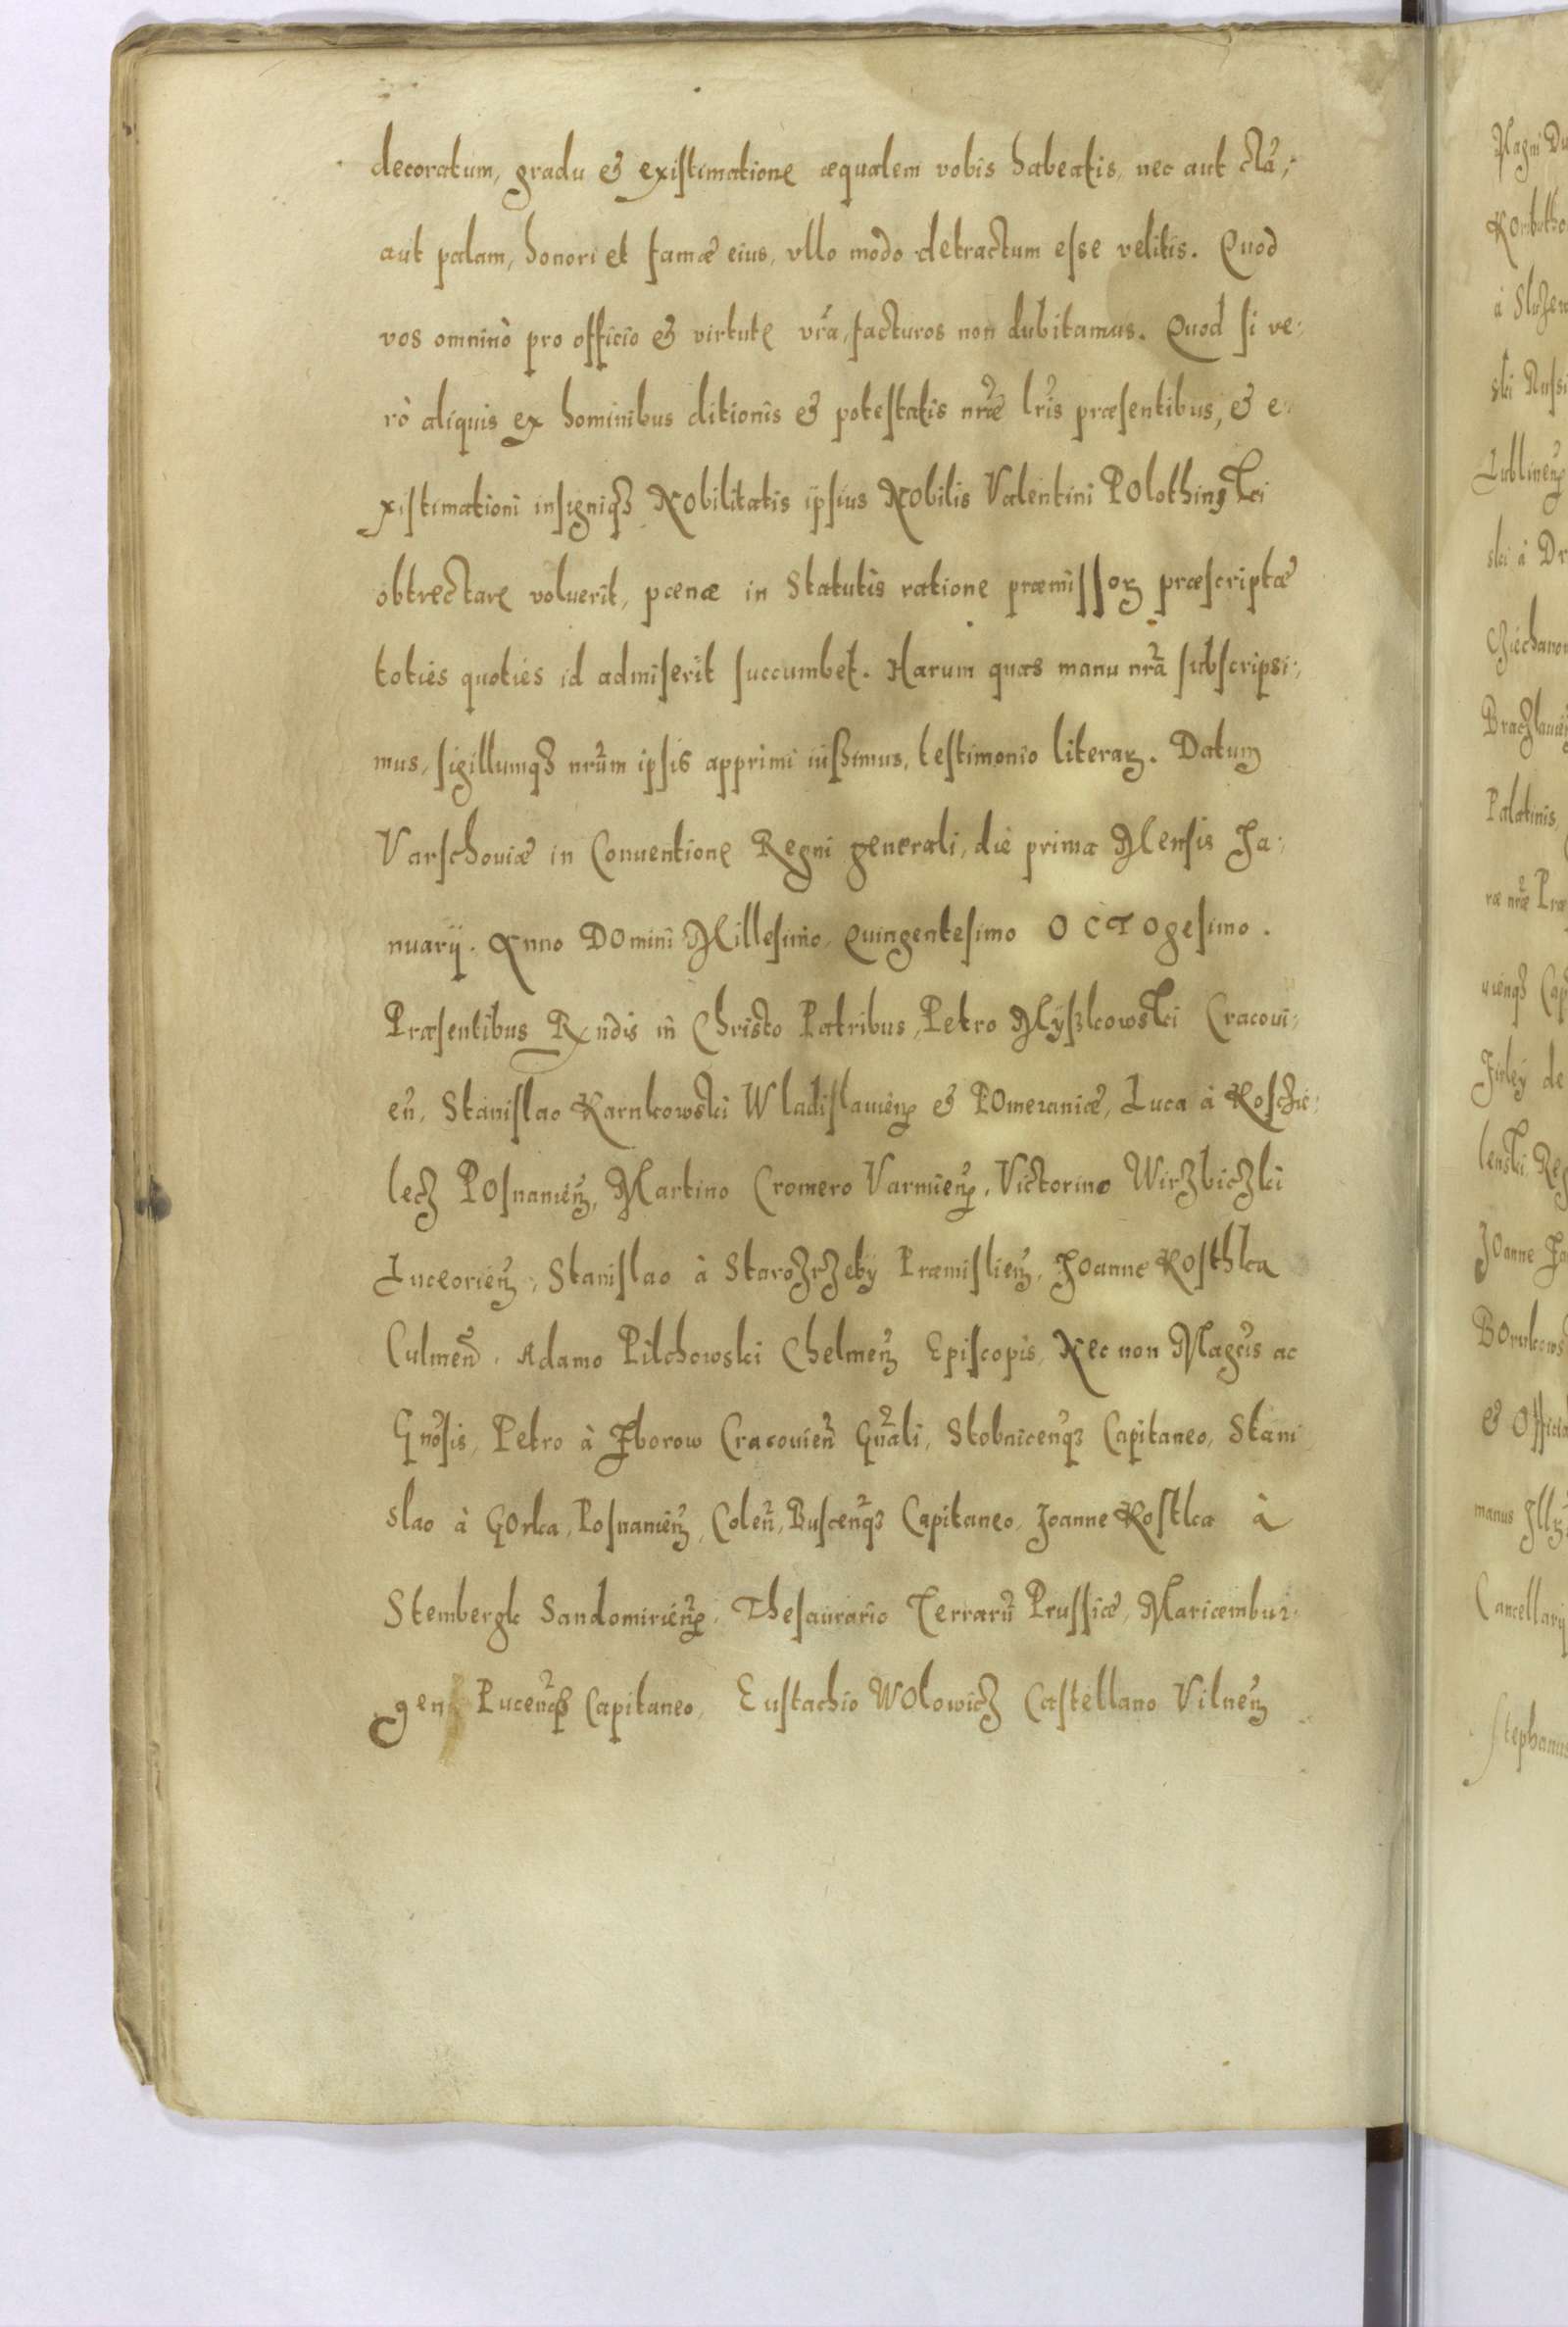 decoratum, gradu & existimatione æqualem vobis habeatis, nec aut clā,
aut palam, honori et famæ eius, vllo modo detractum esse velitis. Quod
vos omninò pro officio & virtute vrã, facturos non dubitamus. Quod si ve:
rò aliquis ex hominibus ditionis & potestatis nræ̃ lris̃ præsentibus, & e:
xistimationi insigniqȝ Nobilitatis ipsius Nobilis Valentini Polothinski
obtrectare voluerit, pœnæ in Statutis ratione præmissoꝝ præscriptæ
toties quoties id admiserit succumbet. Harum quas manu nrã subscripsi:
mus, sigillumqȝ nrũm ipsis apprimi iussimus, testimonio literaꝝ. Datum
Varschouiæ in Conuentione Regni generali, die prima Mensis Ja:
nuarij. Anno Domini Millesimo, Quingentesimo Octogesimo.
Præsentibus Rndis in Christo Patribus, Petro Myszkowski Cracoui:
eñ, Stanislao Karnkowski Wladislauieñ & Pomeraniæ, Luca à Kosczie:
lecz Posnanieñ, Martino Cromero Varmieñ, Victorino Wirzbiczki
Luceorieñ, Stanislao à Starozrzeby Præmislieñ, Joanne Kosthka
Culmeñ, Adamo Pilchowski Chelmeñ Episcopis, Nec non Magcis ac
Gnosis, Petro à Zborow Cracouieñ Gñali, Stobniceñqȝ Capitaneo, Stani
slao à Gorka, Posnanieñ, Coleñ, Busceñqȝ Capitaneo, Joanne Kostka à
Stembergk Sandomirieñ, Thesaurario Terrarũ Prussiæ, Mariæmbur:
geñ Puceñqȝ Capitaneo, Eustachio Wolowicz Castellano Vilneñ